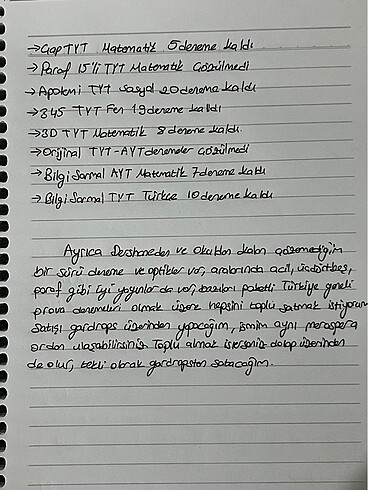 →Çap TYT Matematik 5 deneme kaldı
→Paraf 15'li TYT Matematik Çözülmedi
→Apotemi TYT sosyal 20 deneme kaldı
→345 TYT Fen 19 deneme kaldı
→3D TYT Matematik 8 deneme kaldı.
→Orijinal TYT-AYT denemeler çözülmedi
→Bilgi Sarmal AYT Matematik 7 deneme kaldı
→Bilgi Sarmal TYT Türkçe 10 deneme kaldı
Ayrıca Dershaneden ve okuldan kalan çözemediğim
bir sürü deneme ve optikler var, aralarında acil, üçdörtbeş,
paraf gibi iyi yayınlar da var, bazıları paketli Türkiye geneli
prova denemeleri olmak üzere hepsini toplu satmak istiyorum
satışı gardrops üzerinden yapacağım, ismim aynı
ordan ulaşabilirsiniz Toplu almak isterseniz dolap üzerinden
de olur, tekli olarak gardropstan satacağım.